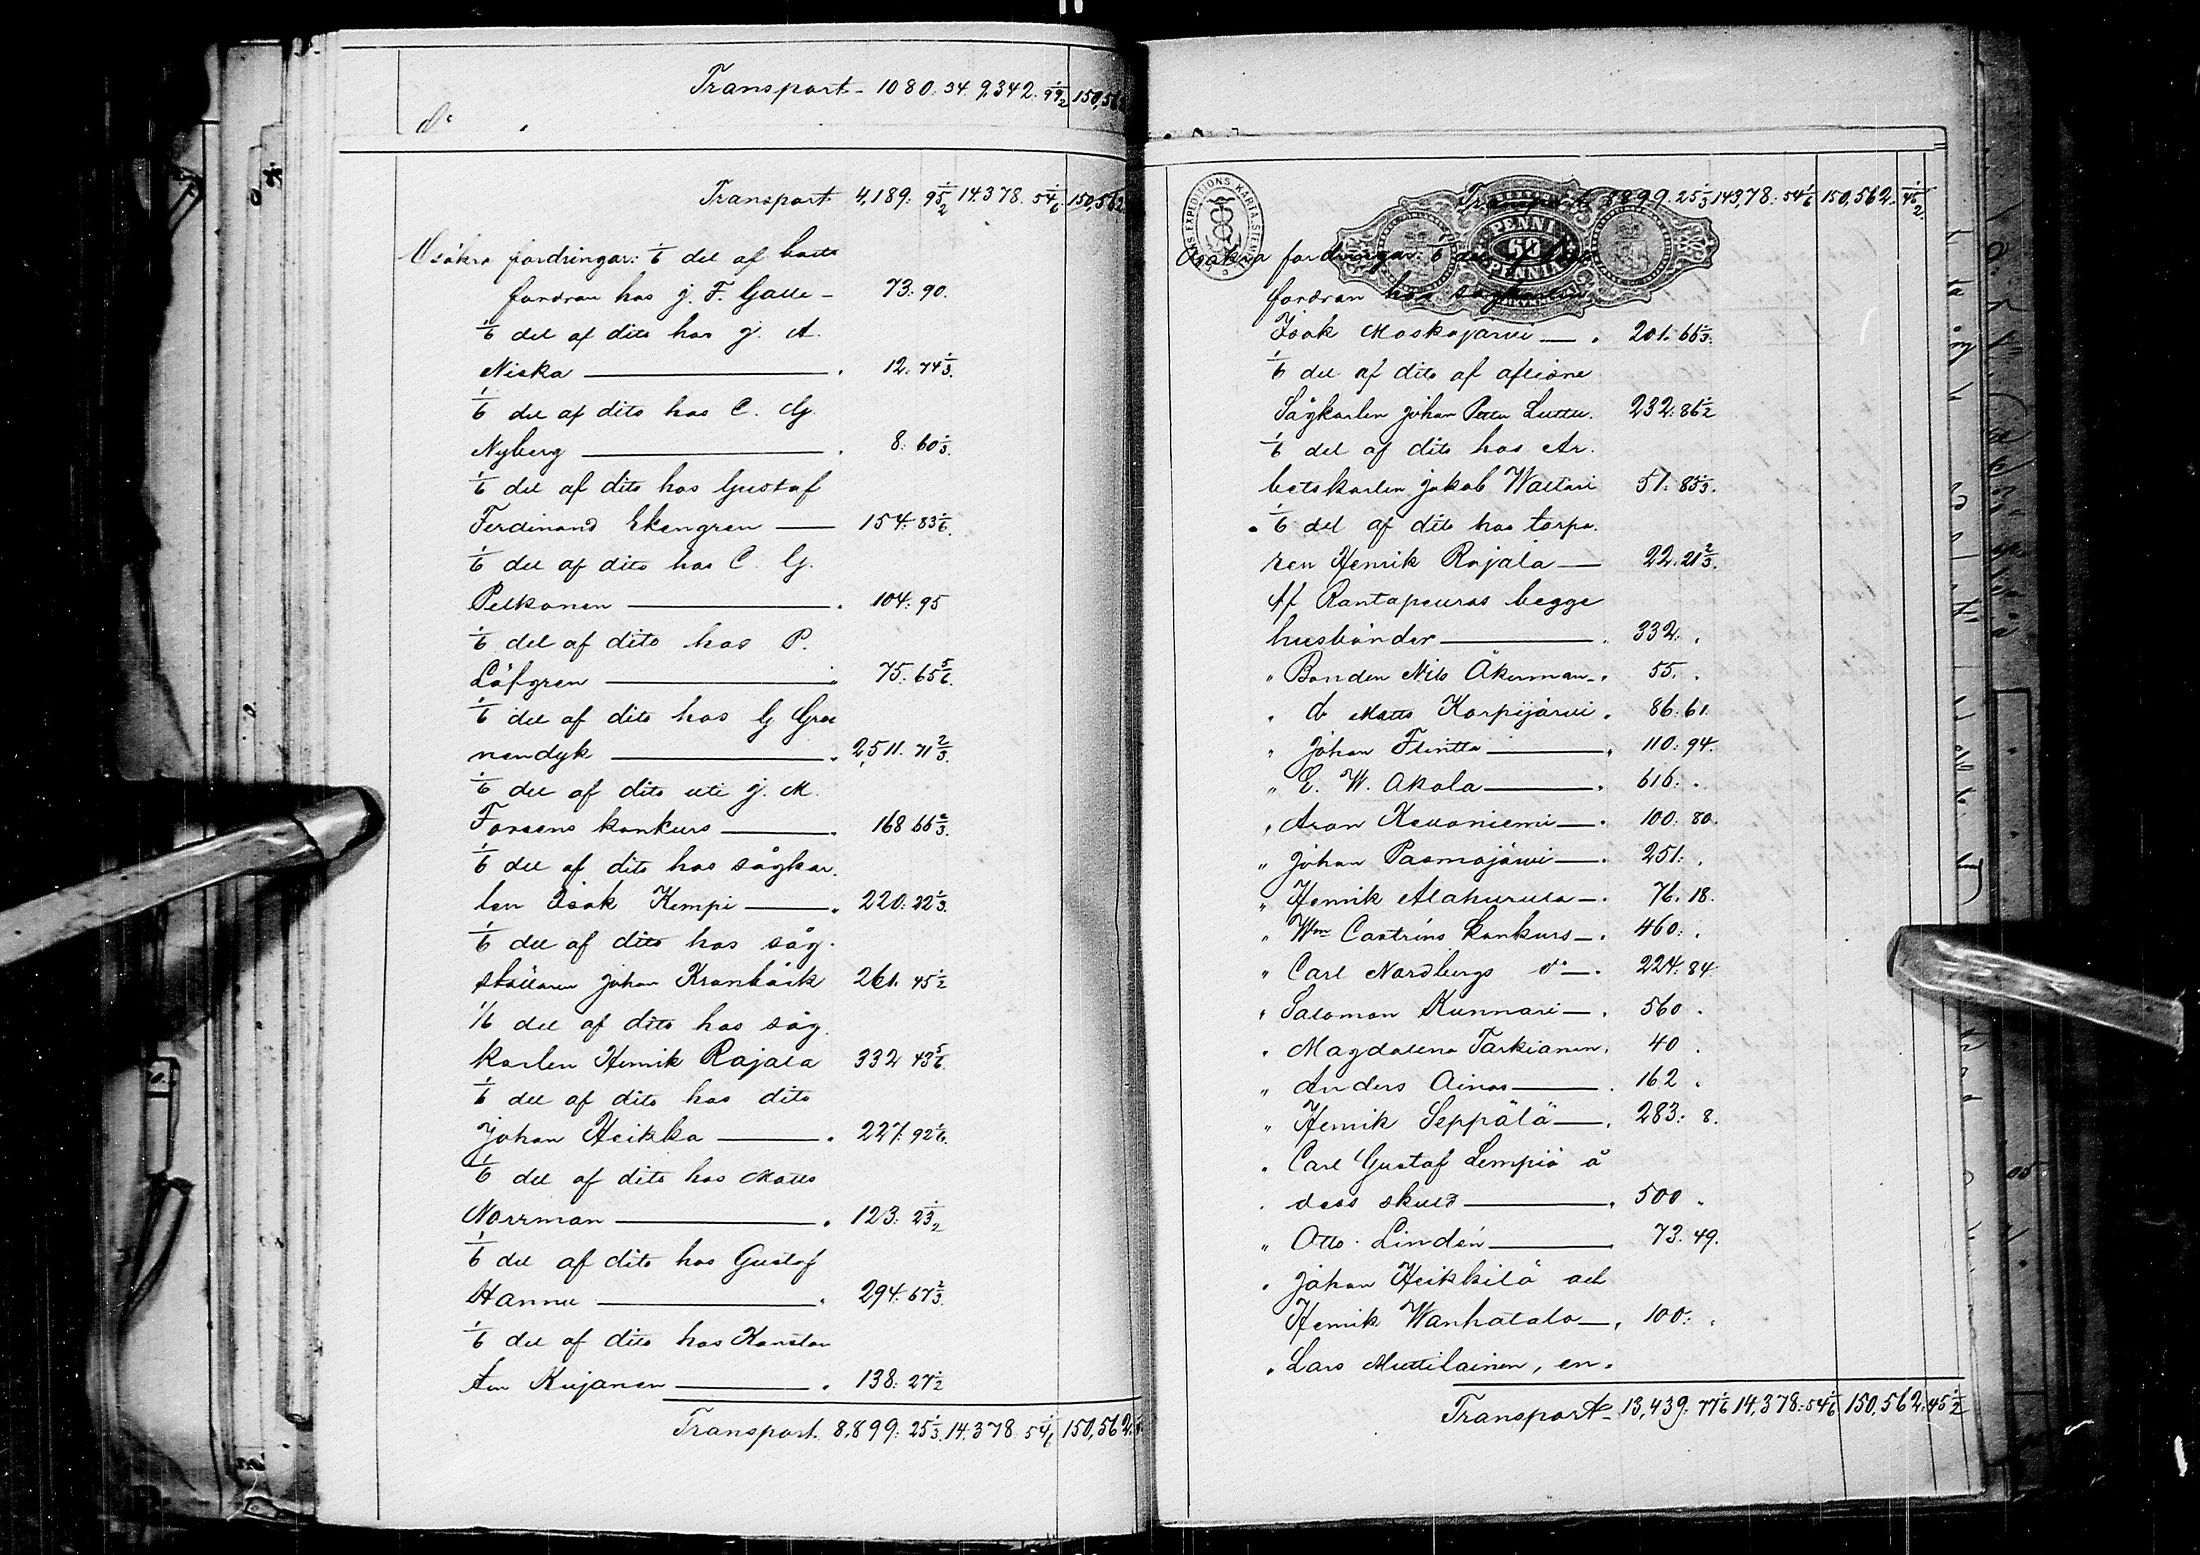 Transport - 1080. 34. 9,342. 99 1/2 150,562
d:o
Transport 4,189. 95 1/2 14.378. 54 1/6 150,562
Osäkra fordringar: 1/6 del af bors
fordran hos J. F. Galle - 73. 90.
1/6 del af dito hos J. A.
Niska — 12. 74 1/3.
1/6 del af dito hos C. G.
Nyberg — 8. 60 1/3.
1/6 del af dito hos Gustaf
Ferdinand Ekengren — 154. 83 1/6.
1/6 del af dito hos C. G.
Pelkonen — 104. 95
1/6 del af dito hos P.
Löfgren — 75. 65 5/6.
1/6 del af dito hos G Groe
nendyk — 2,511. 71 2/3.
1/6 del af dito uti J. M.
Forsens konkurs — 168 66 2/3.
1/6 del af dito hos sågkar.
len Isak Kempi — 220. 22 1/3.
1/6 del af dito hos såg.
ställaren Johan Kranbäck 261. 45 1/2
1/6 del af dito hos såg.
karlen Henrik Rajala 332 43 5/6.
1/6 del af dito hos dito
Johan Heikka — 227. 92 1/6.
1/6 del af dito hos Matts
Norrman — 123. 23 1/2
1/6 del af dito hos Gustaf
Hannu — 294. 67 2/3.
1/6 del af dito hos Karsten
Kujanen — 138. 27 1/2
Transport 8,899. 25 1/3. 14.378. 54 1/6 150,562.
EXPEDITIONS KARTA STEM
PENNI
60
PENNIÄ
Transport 8899. 25 1/3 14378. 54 1/6 150,562. 45 1/2.
Osäkra fordringar. 1/6 del
fordran hos sågkarlen
Isak Maskojärvi — 201. 65 1/3.
1/6 del af dito af aflidne
Sågkarlen Johan Petter Luttu. 232. 86 1/2
1/6 del af dito hos Ar.
betskarlen Jakob Wattari 51. 85 1/3.
1/6 del af dito hos torpa.
ren Henrik Rajala — 22. 21 2/3.
Af Rantapeuras begge
husbönder — 332. .
" Bonden Nils Åkerman . 55. .
" d:o Matts Korpijärvi . 86. 61.
" Johan Flintta — 110. 94.
" E. W. Akola — 616. .
" Aron Keuoniemi — 100. 80.
" Johan Pasmajärvi — 251. .
" Henrik Alahurula — 76. 18.
" Wm Castréns konkurs — 460. .
" Carl Nordbergs d:o — 224. 84
" Salomon Kunnari — 560 .
" Magdalena Tarkiainen . 40 .
" Anders Ainas — 162 .
" Henrik Seppälä — 283. 8.
" Carl Gustaf Lempiö å
dess skuld — 500 .
" Otto Lindén — 73. 49.
" Johan Heikkilä och
Henrik Wanhatalo — 100. .
" Lars Muttilainen, en.
Transport - 13,439. 77 1/6 14,378. 54 1/6 150,562. 45 1/2